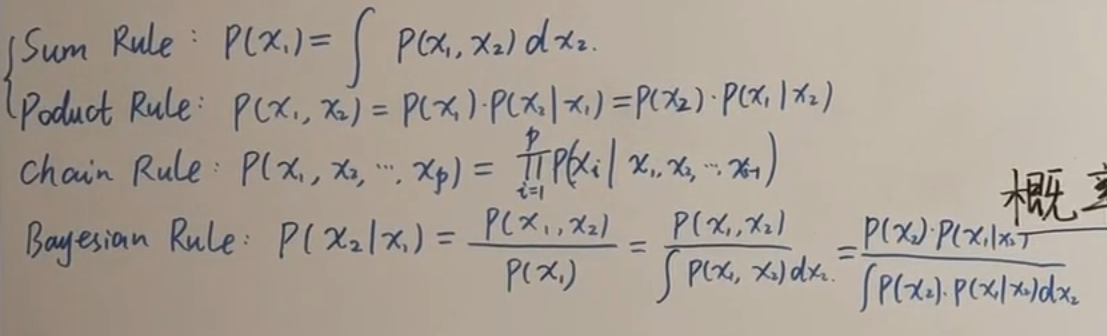 Sum Rule: P(x₁) = ∫ P(x₁, x₂) dx₂.
Poduct Rule: P(x₁, x₂) = P(x₁)·P(x₂|x₁) = P(x₂)·P(x₁|x₂)
Chain Rule: P(x₁, x₂, ..., xₚ) = ∏ᵢ₌₁ᵖ P(xᵢ | x₁, x₂, ... xᵢ₋₁)
概
Bayesian Rule: P(x₂|x₁) = P(x₁, x₂) / P(x₁) = P(x₁, x₂) / ∫ P(x₁, x₂) dx₂. = P(x₂)·P(x₁|x₂) / ∫ P(x₂)·P(x₁|x₂) dx₂